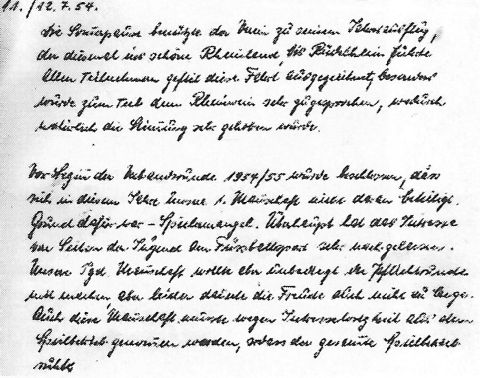 11./12.7.54.
Die Sommerpause benützte der Verein zu seinem Jahresausflug,
der diesmal ins schöne Rheinland, bis Rüdesheim führte
Allen Teilnehmern gefiel diese Fahrt ausgezeichnet, besonders
würde zum Teil dem Rheinwein sehr zugesprochen, wodurch
natürlich die Stimmung sehr gehoben würde.
Vor Beginn der Verbandsrunde 1954/55 würde beschlossen, dass
sich in diesem Jahre unsere 1. Mannschaft nicht daran beteiligt.
Grund dafür war - Spielermangel. Überhaupt hat das Interesse
von Seiten der Jugend am Fussballsport sehr nachgelassen.
Unsere Jgd. Mannschaft wollte aber unbedingt die Pflichtrunde
mit machen, aber leider dauerte die Freude auch nicht zu lange.
Auch diese Mannschaft musste wegen Interesselosigkeit aus dem
Spielbetrieb genommen werden, sodass der gesamte Spielbetrieb
ruhte.